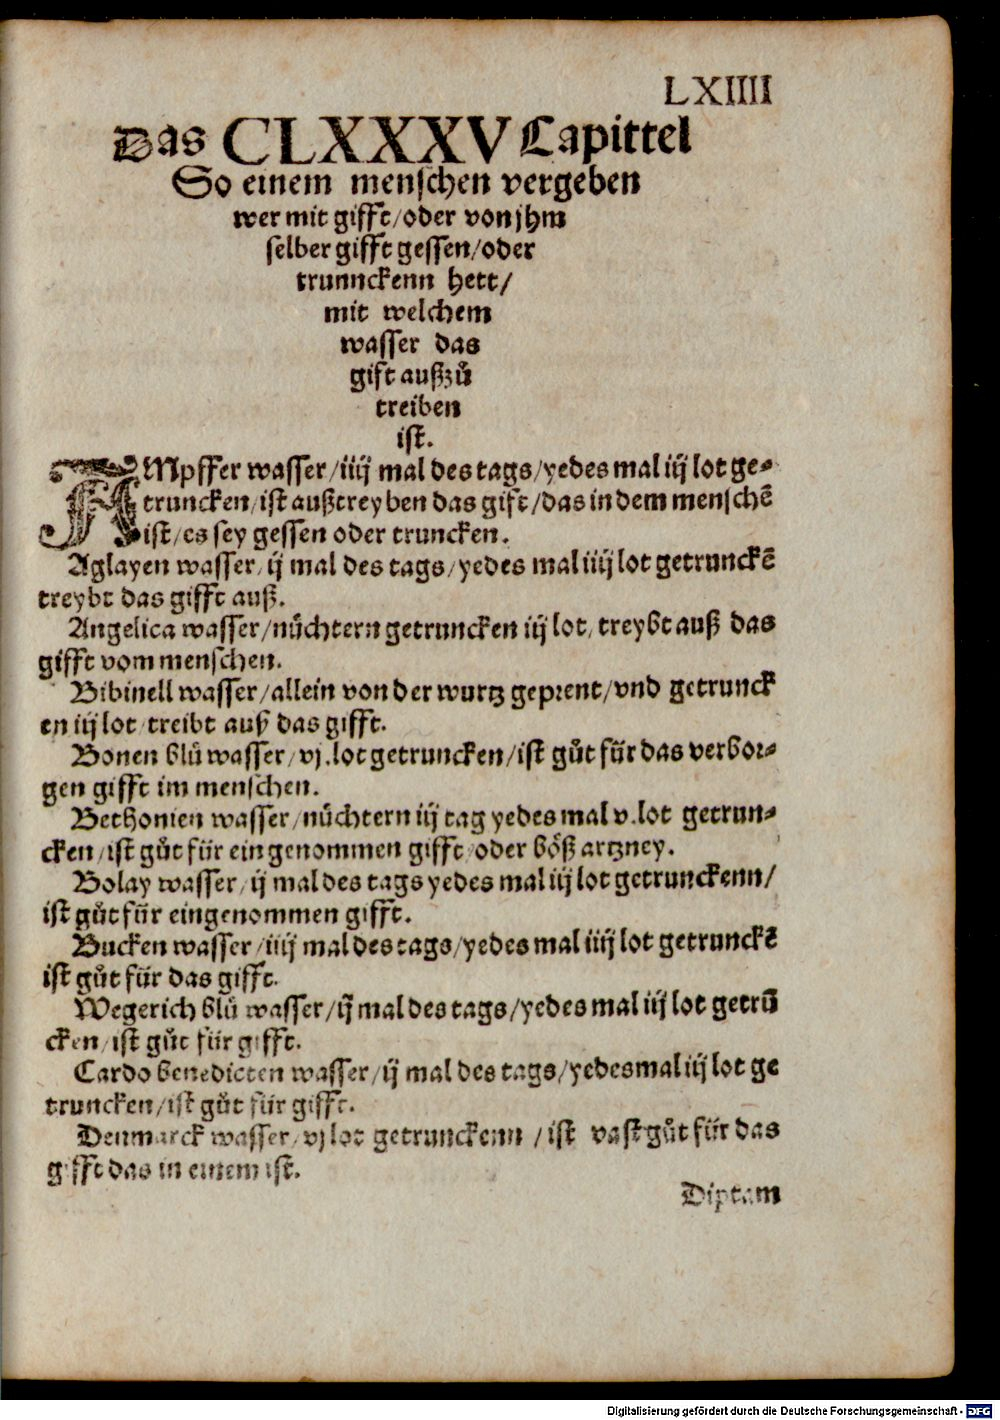 LXIIII
Das CLXXXV Capittel
So einem menschen vergeben
wer mit gifft/oder von jhm
selber gifft gessen/oder
trunnckenn hett/
mit welchem
wasser das
gift außzuͦ
treiben
ist.
AMpffer wasser/iiij mal des tags/yedes mal iij lot ge-
truncken/ist außtreyben das gift/das in dem menschē
ist/es sey gessen oder truncken.
Aglayen wasser/ij mal des tags/yedes mal iiij lot getrunckē
treybt das gifft auß.
Angelica wasser/nuͤchtern getruncken iij lot/treybt auß das
gifft vom menschen.
Bibinell wasser/allein von der wurtz geprent/vnd getrunck
en iij lot/treibt auß das gifft.
Bonen bluͦ wasser/vj.lot getruncken/ist guͦt für das verbor-
gen gifft im menschen.
Bethonien wasser/nuͤchtern iij tag yedes mal v.lot getrun-
cken/ist guͦt für ein genommen gifft/oder boͤß artzney.
Bolay wasser/ij mal des tags yedes mal iij lot getrunckenn/
ist guͦt für eingenommen gifft.
Bucken wasser/iiij mal des tags/yedes mal iiij lot getrunckē
ist guͦt für das gifft.
Wegerich bluͦ wasser/ij mal des tags/yedes mal iij lot getrū
cken/ist guͦt für gifft.
Cardo benedicten wasser/ij mal des tags/yedes mal iij lot ge
truncken/ist guͦt für gifft.
Denmarck wasser/vj lot getrunckenn /ist vast guͦt für das
gifft das in einem ist.
Diptam
Digitalisierung gefördert durch die Deutsche Forschungsgemeinschaft - DFG